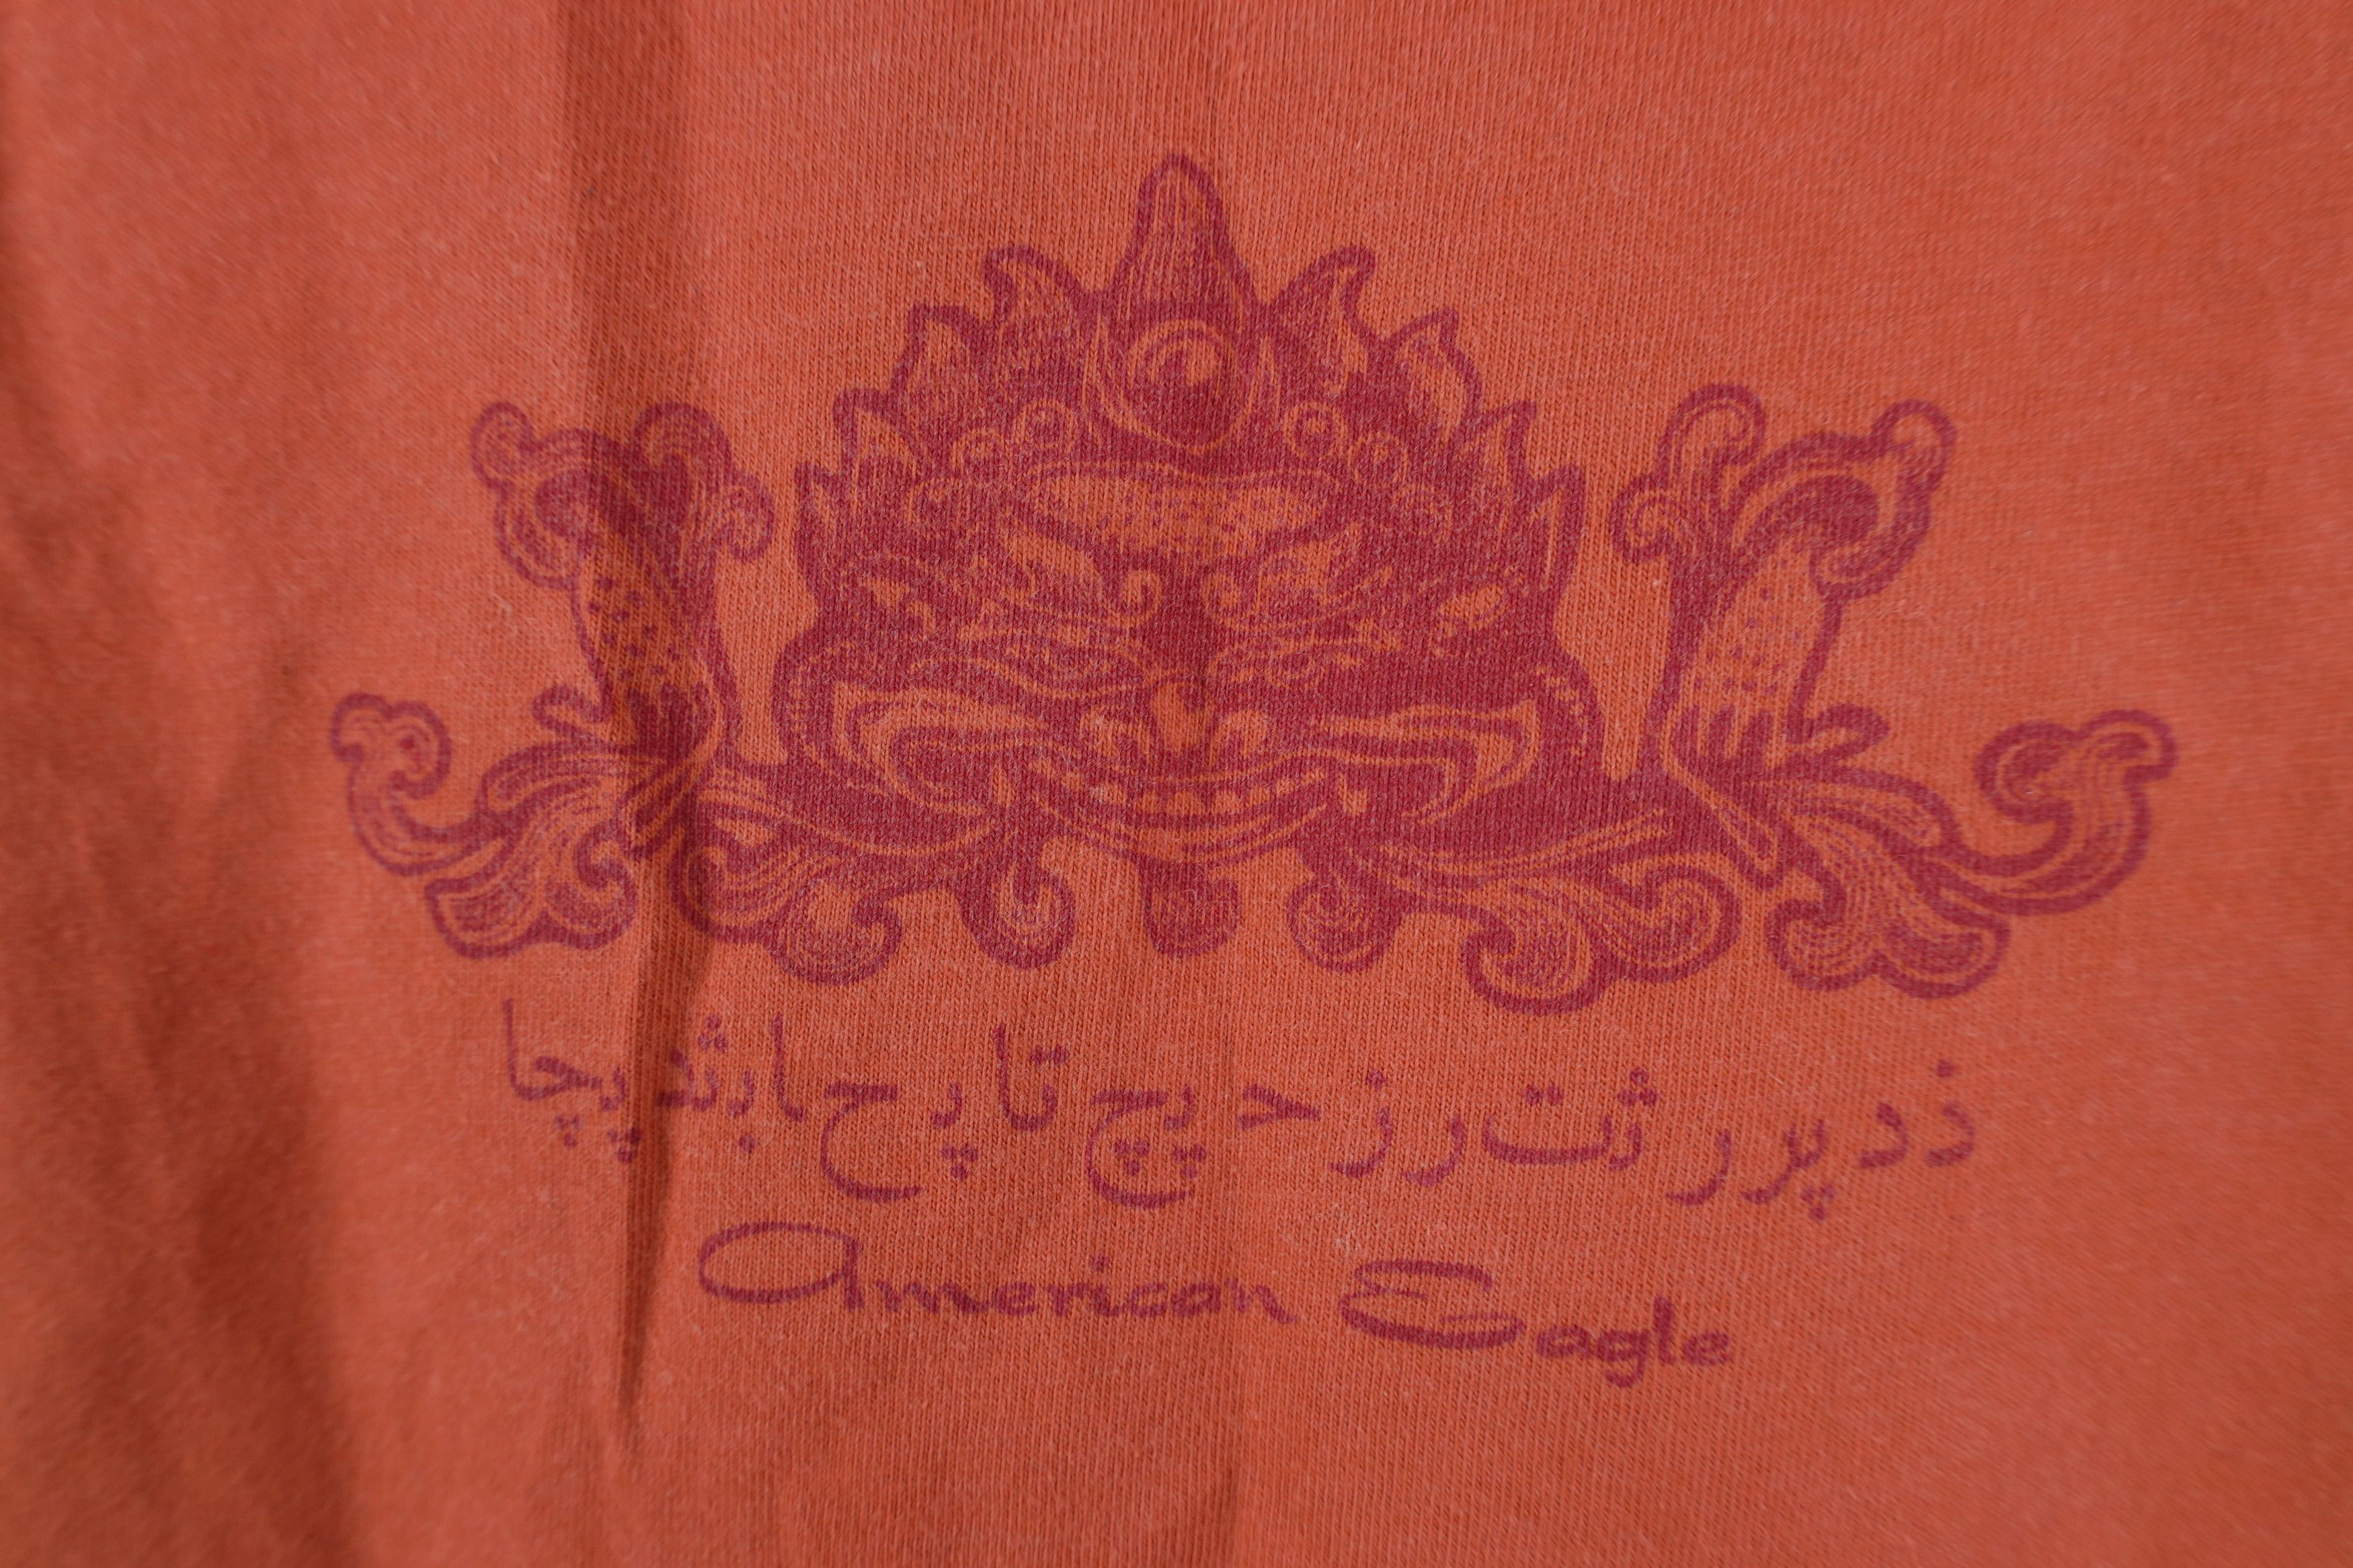 ذد پر ر ژت رز حپچ تا پح ابژد پچا
American Eagle